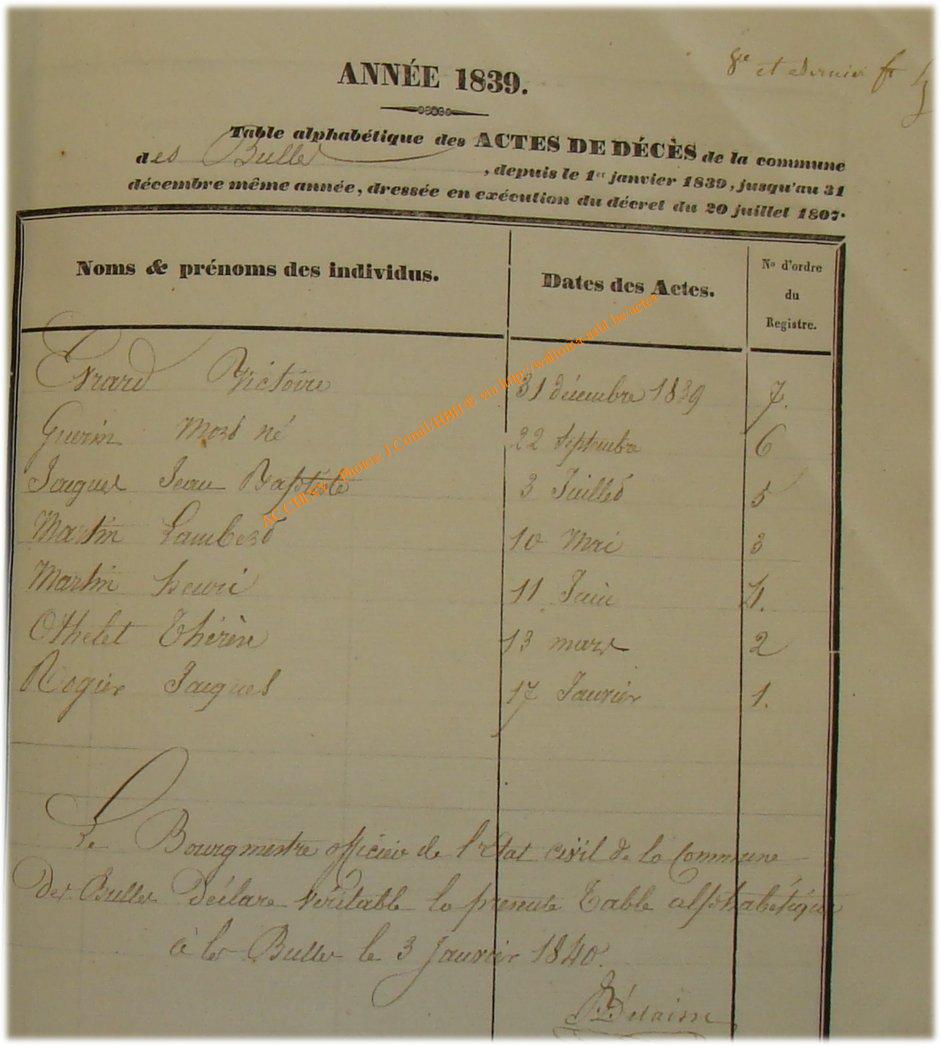 8e et dernier
ANNÉE 1839.
Table alphabétique des ACTES DE DÉCÈS de la commune
des Bulles, depuis le 1er janvier 1839, jusqu'au 31
décembre même année, dressée en exécution du décret du 20 juillet 1807.
Noms & prénoms des individus. Dates des Actes. No d'ordre du Registre.
Evrard Victoire 31 décembre 1839 7.
Guerin Mort né 22 Septembre 6
Jacques Jean Baptiste 3 Juillet 5
Martin Lambert 10 Mai 3
Martin henri 11 Juin 4.
Othelet Thérèse 13 mars 2
Rogier Jacques 17 Janvier 1.
Le Bourgmestre officier de l'Etat civil de la Commune
Des Bulles Déclare Véritable la présente Table alphabétique
à les Bulles le 3 Janvier 1840.